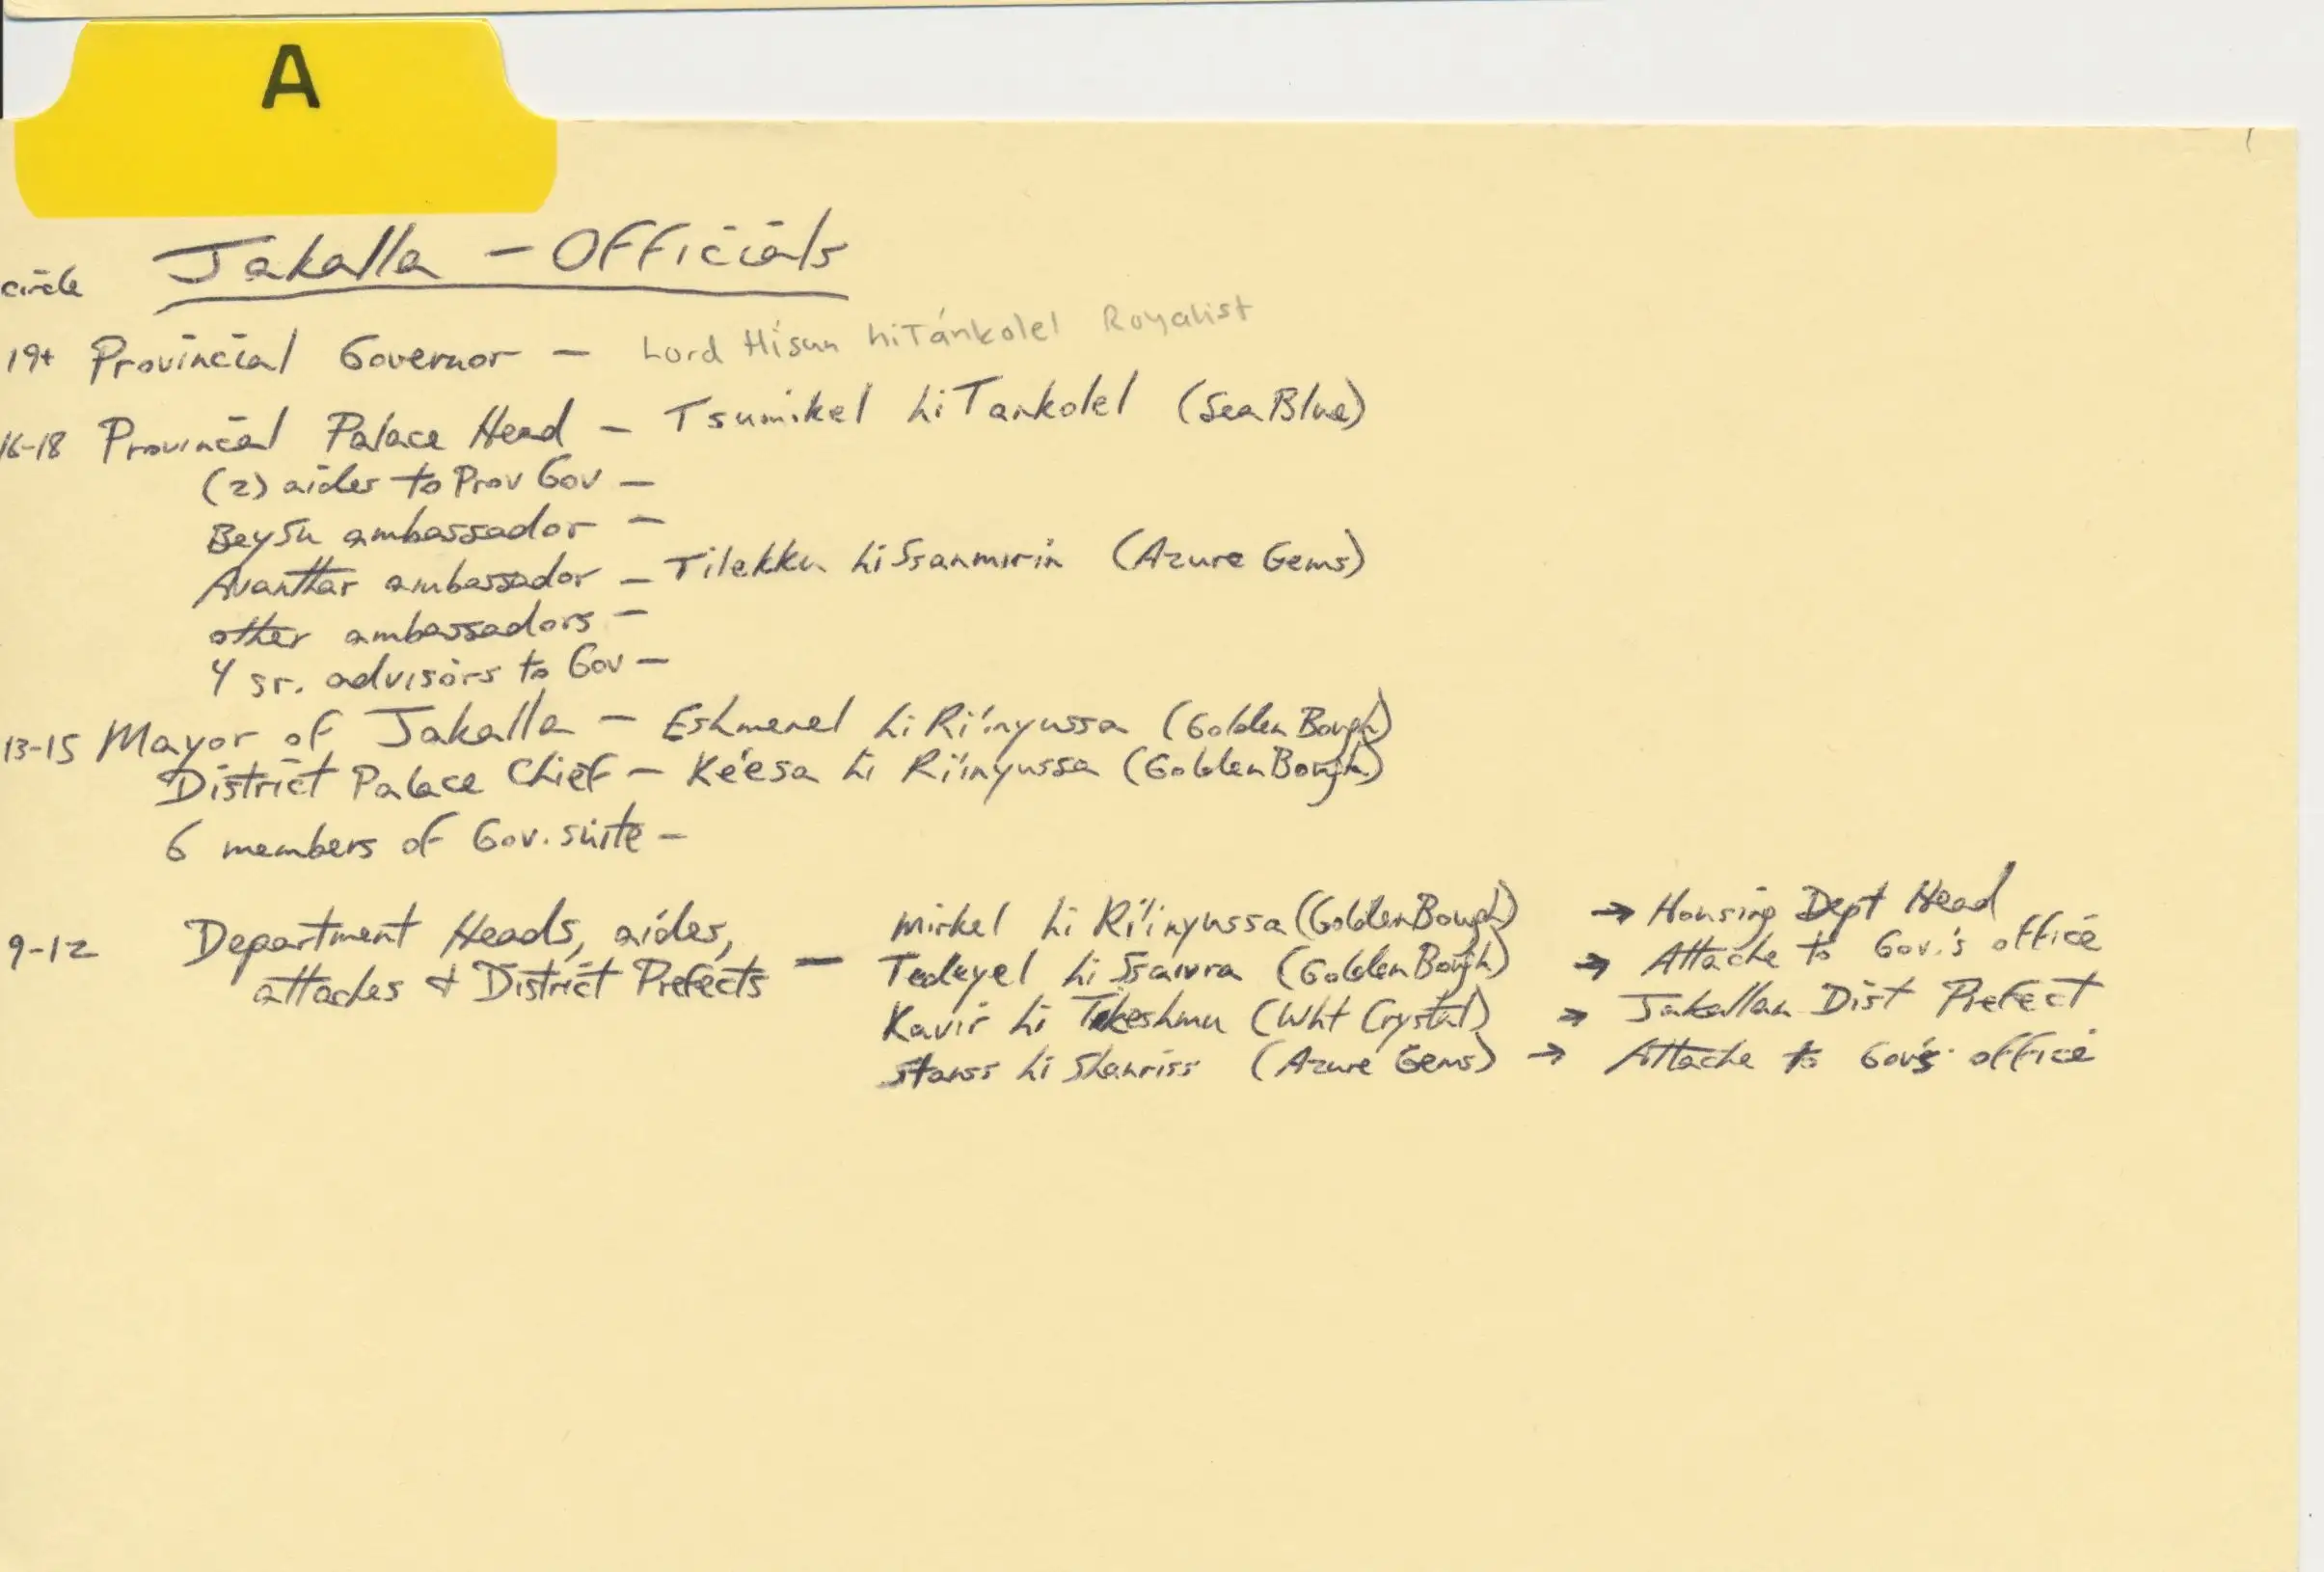 A
Jakalla - Officials
circle
19+ Provincial Governor - Lord Hisun hiTánkolel Royalist
16-18 Provincial Palace Head - Tsumikel hiTankolel (Sea Blue)
(2) aides to Prov Gov -
BeySu ambassador -
Avanthar ambassador - Tilekku hiSsanmirin (Azure Gems)
other ambassadors -
4 sr. advisors to Gov -
13-15 Mayor of Jakalla - Eshmenel hi Ri'inyussa (Golden Bough)
District Palace Chief - Ke'esa hi Ri'inyussa (Golden Bough)
6 members of Gov. suite -
9-12 Department Heads, aides, attaches & District Prefects - Mirkel hi Ri'inyussa (Golden Bough) → Housing Dept Head
Tedeyel hi Ssaivra (Golden Bough) → Attache to Gov.'s office
Kavir hi Tukeshmu (Wht Crystal) → Jakallan Dist Prefect
Stanss hi Shanriss (Azure Gems) → Attache to Gov's office